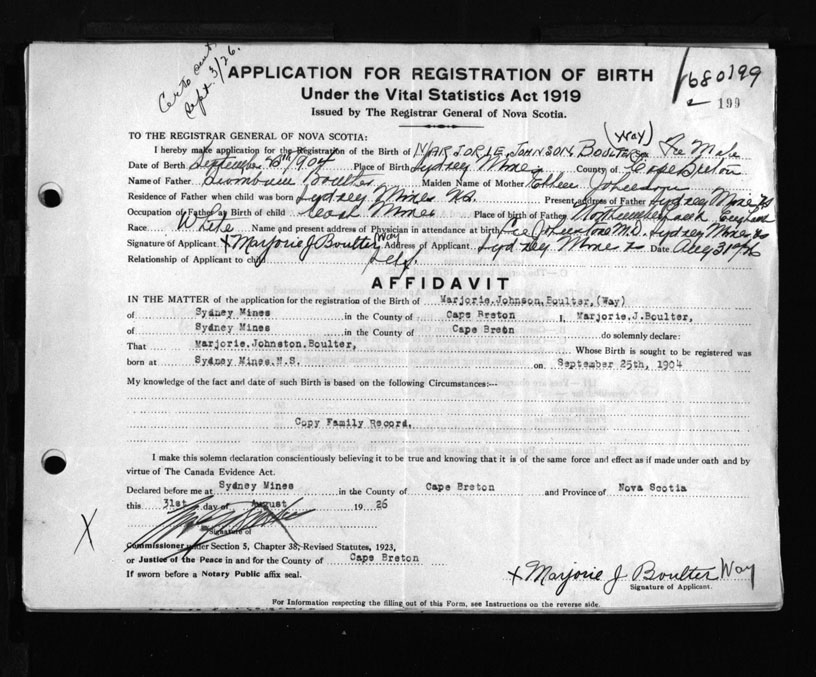 Certo sent,
Sept. 3/26.
680199
199
APPLICATION FOR REGISTRATION OF BIRTH
Under the Vital Statistics Act 1919
Issued by The Registrar General of Nova Scotia.
TO THE REGISTRAR GENERAL OF NOVA SCOTIA:
(Way)
I hereby make application for the Registration of the Birth of MARJORIE JOHNSON BOULTER Fe Male
Date of Birth September 25th 1904 Place of Birth Sydney Mines County of Cape Breton
Name of Father Boulter Maiden Name of Mother Johnson
Residence of Father when child was born Sydney Mines N.S. Present address of Father Sydney Mines N.S
Occupation of Father at Birth of child Coal Mines Place of birth of Father Northumberland England
Race White Name and present address of Physician in attendance at birth Johnstone M.D. Sydney Mines N.S
Signature of Applicant X Marjorie J Boulter Way Address of Applicant Sydney Mines N.S Date Aug 31st/26
Relationship of Applicant to child Self.
AFFIDAVIT
IN THE MATTER of the application for the registration of the Birth of Marjorie.Johnson.Boulter,(Way)
of Sydney Mines in the County of Cape Breton I, Marjorie.J.Boulter,
of Sydney Mines in the County of Cape Breton do solemnly declare:
That Marjorie.Johnston.Boulter, Whose Birth is sought to be registered was
born at Sydney Mines.N.S. on September 25th, 1904
My knowledge of the fact and date of such Birth is based on the following Circumstances:—
Copy Family Record.
I make this solemn declaration conscientiously believing it to be true and knowing that it is of the same force and effect as if made under oath and by
virtue of The Canada Evidence Act.
Declared before me at Sydney Mines in the County of Cape Breton and Province of Nova Scotia
this 31st day of August 1926
Signature of
X
Commissioner under Section 5, Chapter 38, Revised Statutes, 1923,
or Justice of the Peace in and for the County of Cape Breton
If sworn before a Notary Public affix seal.
X Marjorie J Boulter Way
Signature of Applicant.
For Information respecting the filling out of this Form, see Instructions on the reverse side.